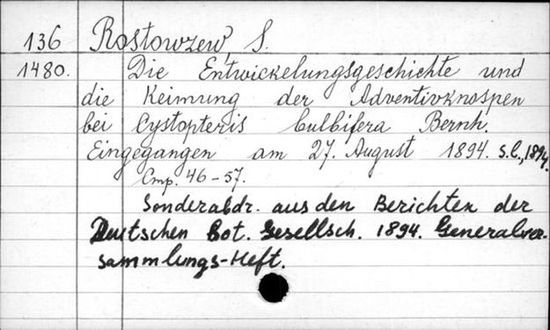 136 Rostowzew, S.
1480. Die Entwickelungsgeschichte und
die Keimung der Adventivknospen
bei Cystopteris bulbifera Bernh.
Eingegangen am 27. August 1894. S.l., 1894.
Cmp. 46-57.
Sonderabdr. aus den Berichten der
Deutschen Bot. Gesellsch. 1894. Generalver-
sammlungs-Heft.